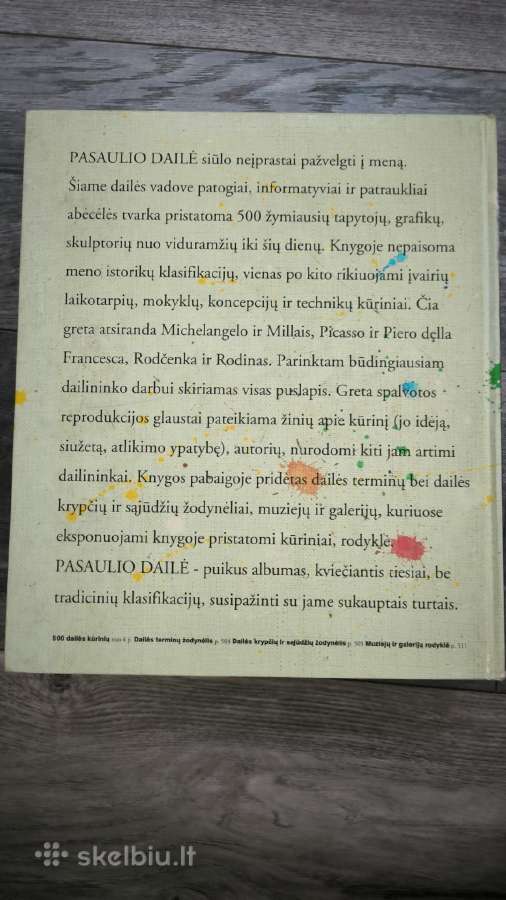 PASAULIO DAILĖ siūlo neįprastai pažvelgti į meną.
Šiame dailės vadove patogiai, informatyviai ir patraukliai
abėcėlės tvarka pristatoma 500 žymiausių tapytojų, grafikų,
skulptorių nuo viduramžių iki šių dienų. Knygoje nepaisoma
meno istorikų klasifikacijų, vienas po kito rikiuojami įvairių
laikotarpių, mokyklų, koncepcijų ir technikų kūriniai. Čia
greta atsiranda Michelangelo ir Millais, Picasso ir Piero della
Francesca, Rodčenka ir Rodinas. Parinktam būdingiausiam
dailininko darbui skiriamas visas puslapis. Greta spalvotos
reprodukcijos glaustai pateikiama žinių apie kūrinį (jo idėją,
siužetą, atlikimo ypatybę), autorių, nurodomi kiti jam artimi
dailininkai. Knygos pabaigoje pridėtas dailės terminų bei dailės
krypčių ir sąjūdžių žodynėliai, muziejų ir galerijų, kuriuose
eksponuojami knygoje pristatomi kūriniai, rodyklė.
PASAULIO DAILĖ - puikus albumas, kviečiantis tiesiai, be
tradicinių klasifikacijų, susipažinti su jame sukauptais turtais.
500 dailės kūrinių nuo 4 p. Dailės terminų žodynėlis p. 504 Dailės krypčių ir sąjūdžių žodynėlis p. 509 Muziejų ir galerijų rodyklė p. 511
skelbiu.lt